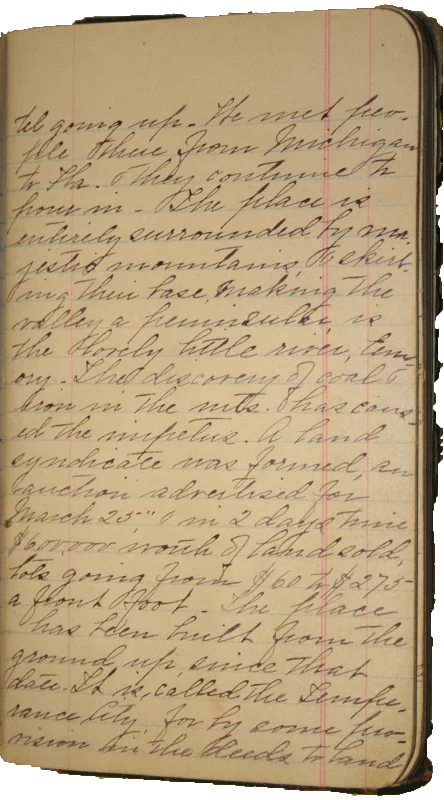 tel going up. We met peo-
ple there from Michigan
to Fla. They continue to
pour in. The place is
entirely surrounded by ma-
jestic mountains, & skirt-
ing their base, making the
valley a peninsula, is
the lovely little river, Em-
ory. The discovery of coal &
iron in the mts. has caus-
ed the impetus. A land
syndicate was formed, an
auction advertised for
March 25", & in 2 days time
$600.000 worth of land sold,
lots going from $60 to $275
a front foot. The place
has been built from the
ground up since that
date. It is called the Tempe-
rance City, for by some pro-
vision in the deeds to land